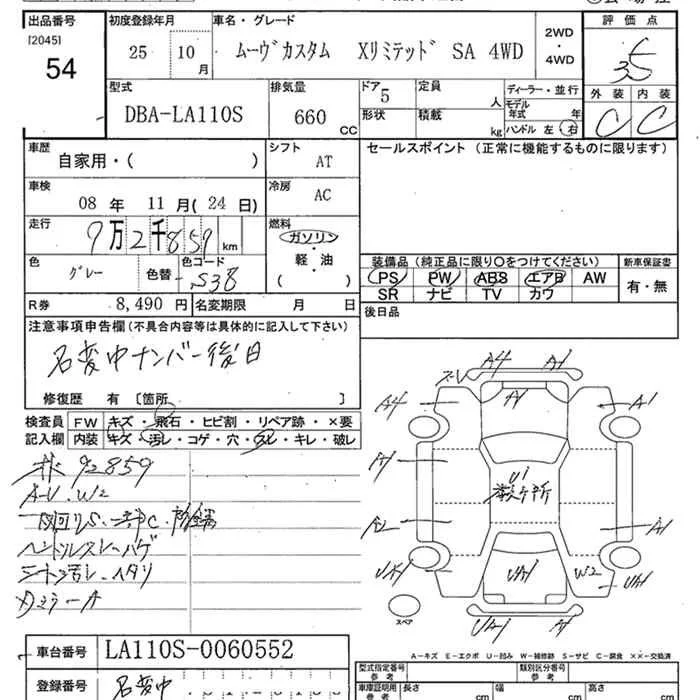 出品番号
[2045]
54
初度登録年月
25 10 月
車名・グレード
ムーヴカスタム Xリミテッド SA 4WD
2WD
・
4WD
評価点
3.5
外装 内装
C C
型式
DBA-LA110S
排気量
660 CC
ドア 5
形状
定員 人
積載 kg
ディーラー・並行
モデル年式 年
ハンドル 左 右
車歴
自家用・( )
シフト AT
車検
08 年 11 月 (24 日)
冷房 AC
走行
9万2千859 km
燃料
ガソリン
・
軽・油
( )
色 グレー
色替
色コード S38
セールスポイント (正常に機能するものに限ります)
装備品 (純正品に限り○をつけてください)
PS PW ABS エアB AW
SR ナビ TV カワ
新車保証書
有・無
R券 8,490 円
名変期限 月 日
後日品
注意事項申告欄 (不具合内容等は具体的に記入して下さい)
名変中ナンバー後日
修復歴 有 〔箇所 〕
検査員記入欄
FW キズ・飛石・ヒビ割・リペア跡・×要
内装 キズ・汚レ・コゲ・穴・スレ・キレ・破レ
92859
A・U・W2
ハンドルスレ・ハゲ
シート汚レ・イタミ
A4 A1
A4 A1 A1
A1 U1
A2 A1
UA1 UA1 W2 UA1
UA1 A1
スペア
A－キズ E－エクボ U－凹み W－補修跡 S－サビ C－腐食 ××－交換済
車台番号 LA110S-0060552
登録番号 名変中
型式指定番号 参考
類別区分番号 参考
車庫証明用 参考
長さ cm
幅 cm
高さ cm